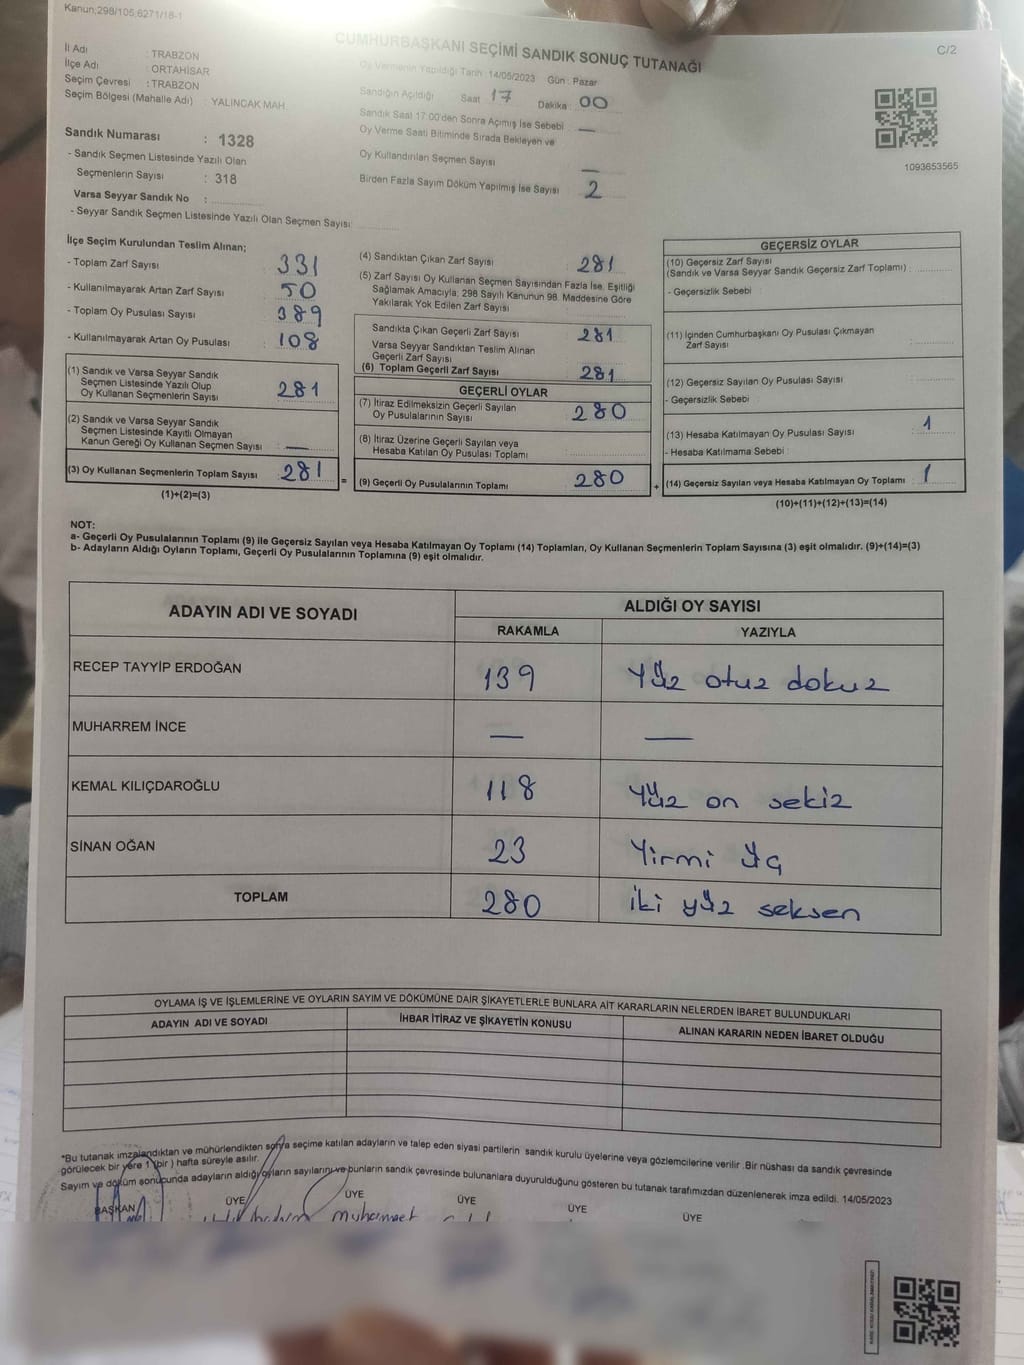 Kanun;298/105;6271/18-1
CUMHURBAŞKANI SEÇİMİ SANDIK SONUÇ TUTANAĞI
C/2
İl Adı : TRABZON
İlçe Adı : ORTAHİSAR
Seçim Çevresi : TRABZON
Seçim Bölgesi (Mahalle Adı) : YALINCAK MAH.
Sandık Numarası : 1328
- Sandık Seçmen Listesinde Yazılı Olan
Seçmenlerin Sayısı : 318
Varsa Seyyar Sandık No :
- Seyyar Sandık Seçmen Listesinde Yazılı Olan Seçmen Sayısı:
Oy Vermenin Yapıldığı Tarih :14/05/2023 Gün : Pazar
Sandığın Açıldığı Saat : 17 Dakika : 00
Sandık Saat 17:00'den Sonra Açmış İse Sebebi : —
Oy Verme Saati Bitiminde Sırada Bekleyen ve
Oy Kullandırılan Seçmen Sayısı —
Birden Fazla Sayım Döküm Yapılmış İse Sayısı 2
1093653565
İlçe Seçim Kurulundan Teslim Alınan;
- Toplam Zarf Sayısı : 331
- Kullanılmayarak Artan Zarf Sayısı : 50
- Toplam Oy Pusulası Sayısı : 389
- Kullanılmayarak Artan Oy Pusulası : 108
(1) Sandık ve Varsa Seyyar Sandık
Seçmen Listesinde Yazılı Olup
Oy Kullanan Seçmenlerin Sayısı : 281
(2) Sandık ve Varsa Seyyar Sandık
Seçmen Listesinde Kayıtlı Olmayan
Kanun Gereği Oy Kullanan Seçmen Sayısı : —
(3) Oy Kullanan Seçmenlerin Toplam Sayısı : 281
(1)+(2)=(3)
=
(4) Sandıktan Çıkan Zarf Sayısı : 281
(5) Zarf Sayısı Oy Kullanan Seçmen Sayısından Fazla İse, Eşitliği
Sağlamak Amacıyla; 298 Sayılı Kanunun 98. Maddesine Göre
Yakılarak Yok Edilen Zarf Sayısı :
Sandıkta Çıkan Geçerli Zarf Sayısı : 281
Varsa Seyyar Sandıktan Teslim Alınan
Geçerli Zarf Sayısı :
(6) Toplam Geçerli Zarf Sayısı : 281
GEÇERLİ OYLAR
(7) İtiraz Edilmeksizin Geçerli Sayılan
Oy Pusulalarının Sayısı : 280
(8) İtiraz Üzerine Geçerli Sayılan veya
Hesaba Katılan Oy Pusulası Toplamı :
(9) Geçerli Oy Pusulalarının Toplamı : 280
+
GEÇERSİZ OYLAR
(10) Geçersiz Zarf Sayısı
(Sandık ve Varsa Seyyar Sandık Geçersiz Zarf Toplamı) :
- Geçersizlik Sebebi :
(11) İçinden Cumhurbaşkanı Oy Pusulası Çıkmayan
Zarf Sayısı :
(12) Geçersiz Sayılan Oy Pusulası Sayısı :
- Geçersizlik Sebebi :
(13) Hesaba Katılmayan Oy Pusulası Sayısı : 1
- Hesaba Katılmama Sebebi :
(14) Geçersiz Sayılan veya Hesaba Katılmayan Oy Toplamı : 1
(10)+(11)+(12)+(13)=(14)
NOT:
a- Geçerli Oy Pusulalarının Toplamı (9) ile Geçersiz Sayılan veya Hesaba Katılmayan Oy Toplamı (14) Toplamları, Oy Kullanan Seçmenlerin Toplam Sayısına (3) eşit olmalıdır. (9)+(14)=(3)
b- Adayların Aldığı Oyların Toplamı, Geçerli Oy Pusulalarının Toplamına (9) eşit olmalıdır.
ADAYIN ADI VE SOYADI
ALDIĞI OY SAYISI
RAKAMLA YAZIYLA
RECEP TAYYİP ERDOĞAN 139 Yüz otuz dokuz
MUHARREM İNCE — —
KEMAL KILIÇDAROĞLU 118 Yüz on sekiz
SİNAN OĞAN 23 Yirmi üç
TOPLAM 280 iki yüz seksen
OYLAMA İŞ VE İŞLEMLERİNE VE OYLARIN SAYIM VE DÖKÜMÜNE DAİR ŞİKAYETLERLE BUNLARA AİT KARARLARIN NELERDEN İBARET BULUNDUKLARI
ADAYIN ADI VE SOYADI İHBAR İTİRAZ VE ŞİKAYETİN KONUSU ALINAN KARARIN NEDEN İBARET OLDUĞU
*Bu tutanak imzalandıktan ve mühürlendikten sonra seçime katılan adayların ve talep eden siyasi partilerin sandık kurulu üyelerine veya gözlemcilerine verilir .Bir nüshası da sandık çevresinde
görülecek bir yere 1 (bir ) hafta süreyle asılır.
Sayım ve döküm sonucunda adayların aldığı oyların sayılarını ve bunların sandık çevresinde bulunanlara duyurulduğunu gösteren bu tutanak tarafımızdan düzenlenerek imza edildi. 14/05/2023
BAŞKAN ÜYE ÜYE ÜYE ÜYE ÜYE